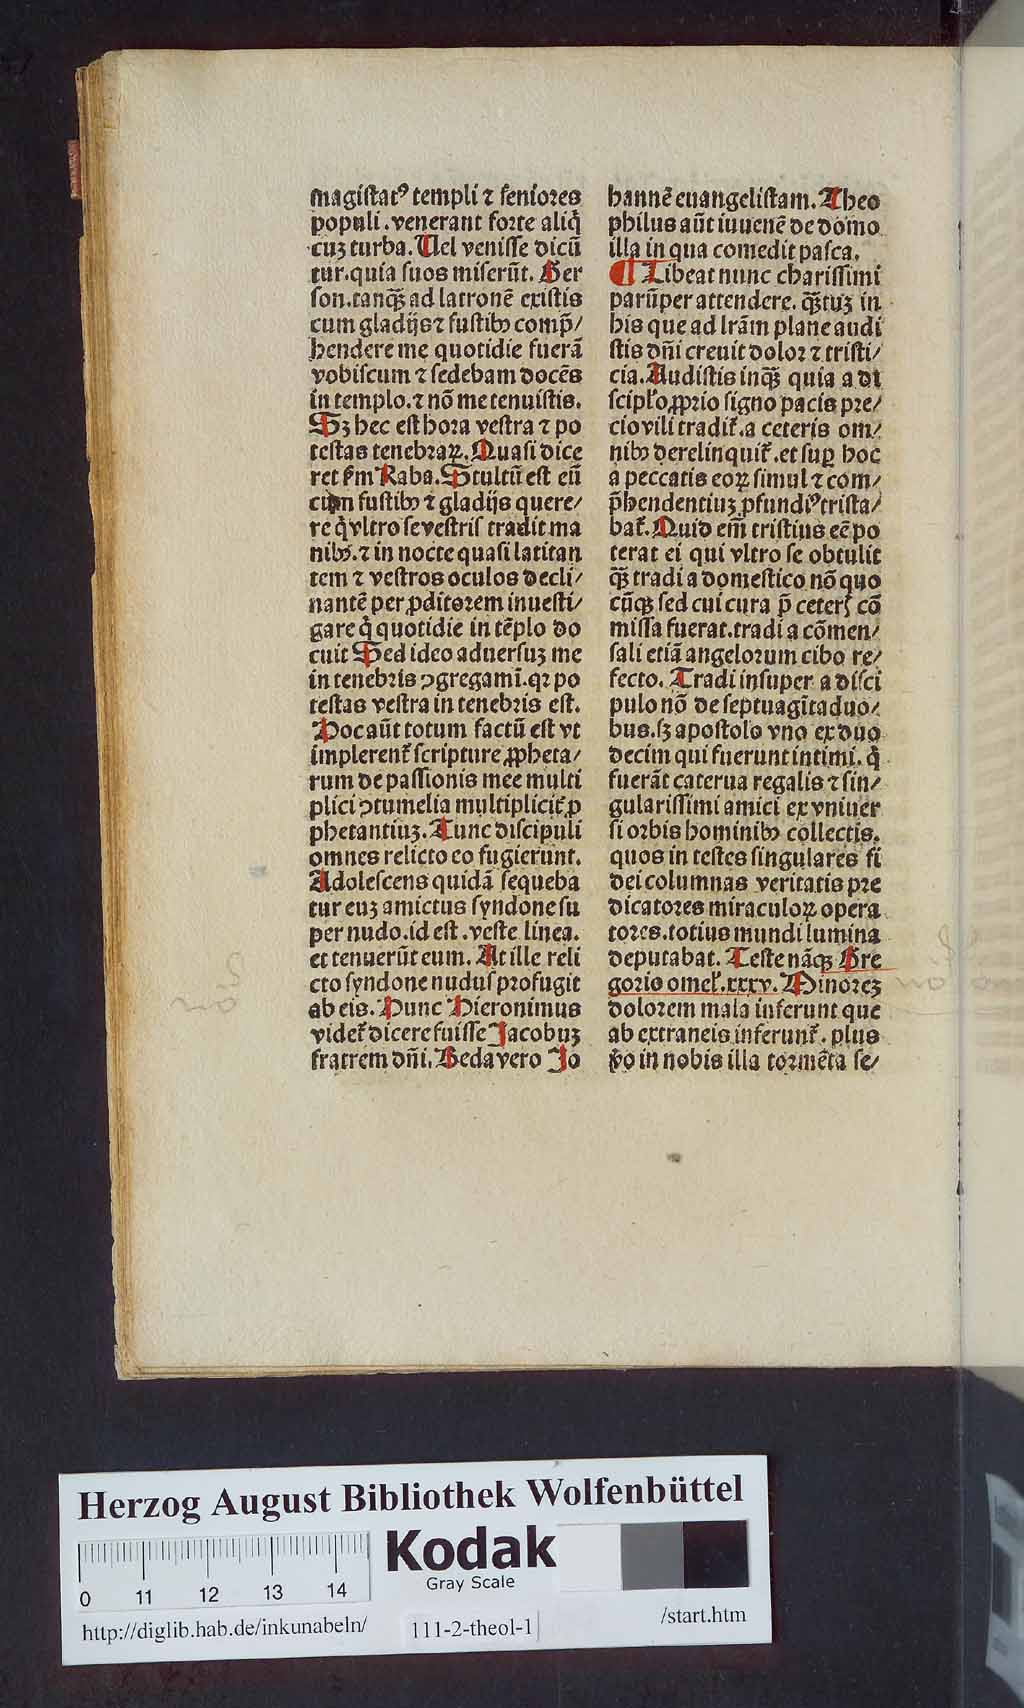 magistatꝰ templi ⁊ seniores
populi .venerant forte aliq̃
cuʒ turba. Uel venisse dicū
tur.quia suos miserūt. Ger
son.tanq̃ʒ ad latronē existis
cum gladijs ⁊ fustibꝰ comp̄/
hendere me quotidie fuerā
vobiscum ⁊ sedebam docēs
in templo.⁊ nō me tenuistis.
Sʒ hec est hora vestra ⁊ po
testas tenebraꝝ. Quasi dice
ret ẜm Raba. Stultū est eū
cum fustibꝰ ⁊ gladijs quere/
re q̃ vltro se vestris tradit ma
nibꝰ.⁊ in nocte quasi latitan
tem ⁊ vestros oculos decli/
nantē per ꝓditorem inuesti/
gare q̃ quotidie in tēplo do
cuit Sed ideo aduersuʒ me
in tenebris ꝯgregamī.qꝛ po
testas vestra in tenebris est.
Hoc aūt totum factū est vt
implerent̃ scripture ꝓpheta/
rum de passionis mee multi
plici ꝯtumelia multiplicit̃ ꝓ
phetantiuʒ. Tunc discipuli
omnes relicto eo fugierunt.
Adolescens quidā sequeba
tur euʒ amictus syndone su
per nudo.id est .veste linea.
et tenuerūt eum. At ille reli
cto syndone nudus profugit
ab eis. Hunc Hieronimus
videt̃ dicere fuisse Jacobuʒ
fratrem dñi. Beda vero Jo
hannē euangelistam. Theo
philus aūt iuuenē de domo
illa in qua comedit pasca.
¶ Libeat nunc charissimi
parūper attendere. q̃ʒtuʒ in
his que ad lrām plane audi
stis dñi creuit dolor ⁊ tristi/
cia. Audistis inq̃ʒ quia a di
scipl̃o ꝓprio signo pacis pre/
cio vili tradit̃.a ceteris om/
nibꝰ derelinquit̃.et suꝑ hoc
a peccatis eoꝝ simul ⁊ com/
p̄hendentiuʒ ꝓfundiꝰ trista/
bat̃. Quid em̄ tristius eē po
terat ei qui vltro se obtulit
q̃ʒ tradi a domestico nō quo
cūqʒ sed cui cura p̄ ceterꝭ cō
missa fuerat.tradi a cōmen/
sali etiā angelorum cibo re/
fecto. Tradi insuper a disci
pulo nō de septuagīta duo/
bus.sʒ apostolo vno ex duo
decim qui fuerunt intimi. q̃
fuerāt caterua regalis ⁊ sin/
gularissimi amici ex vniuer
si orbis hominibꝰ collectis.
quos in testes singulares fi
dei columnas veritatis pre
dicatores miraculoꝝ opera
tores.totius mundi lumina
deputabat. Teste nāqʒ Gre
gorio omel̃.xxxv. Minoreʒ
dolorem mala inferunt que
ab extraneis inferunt̃. plus
ṽo in nobis illa tormēta se/
Herzog August Bibliothek Wolfenbüttel
Kodak
Gray Scale
0 11 12 13 14
http://diglib.hab.de/inkunabeln/
111-2-theol-1
/start.htm